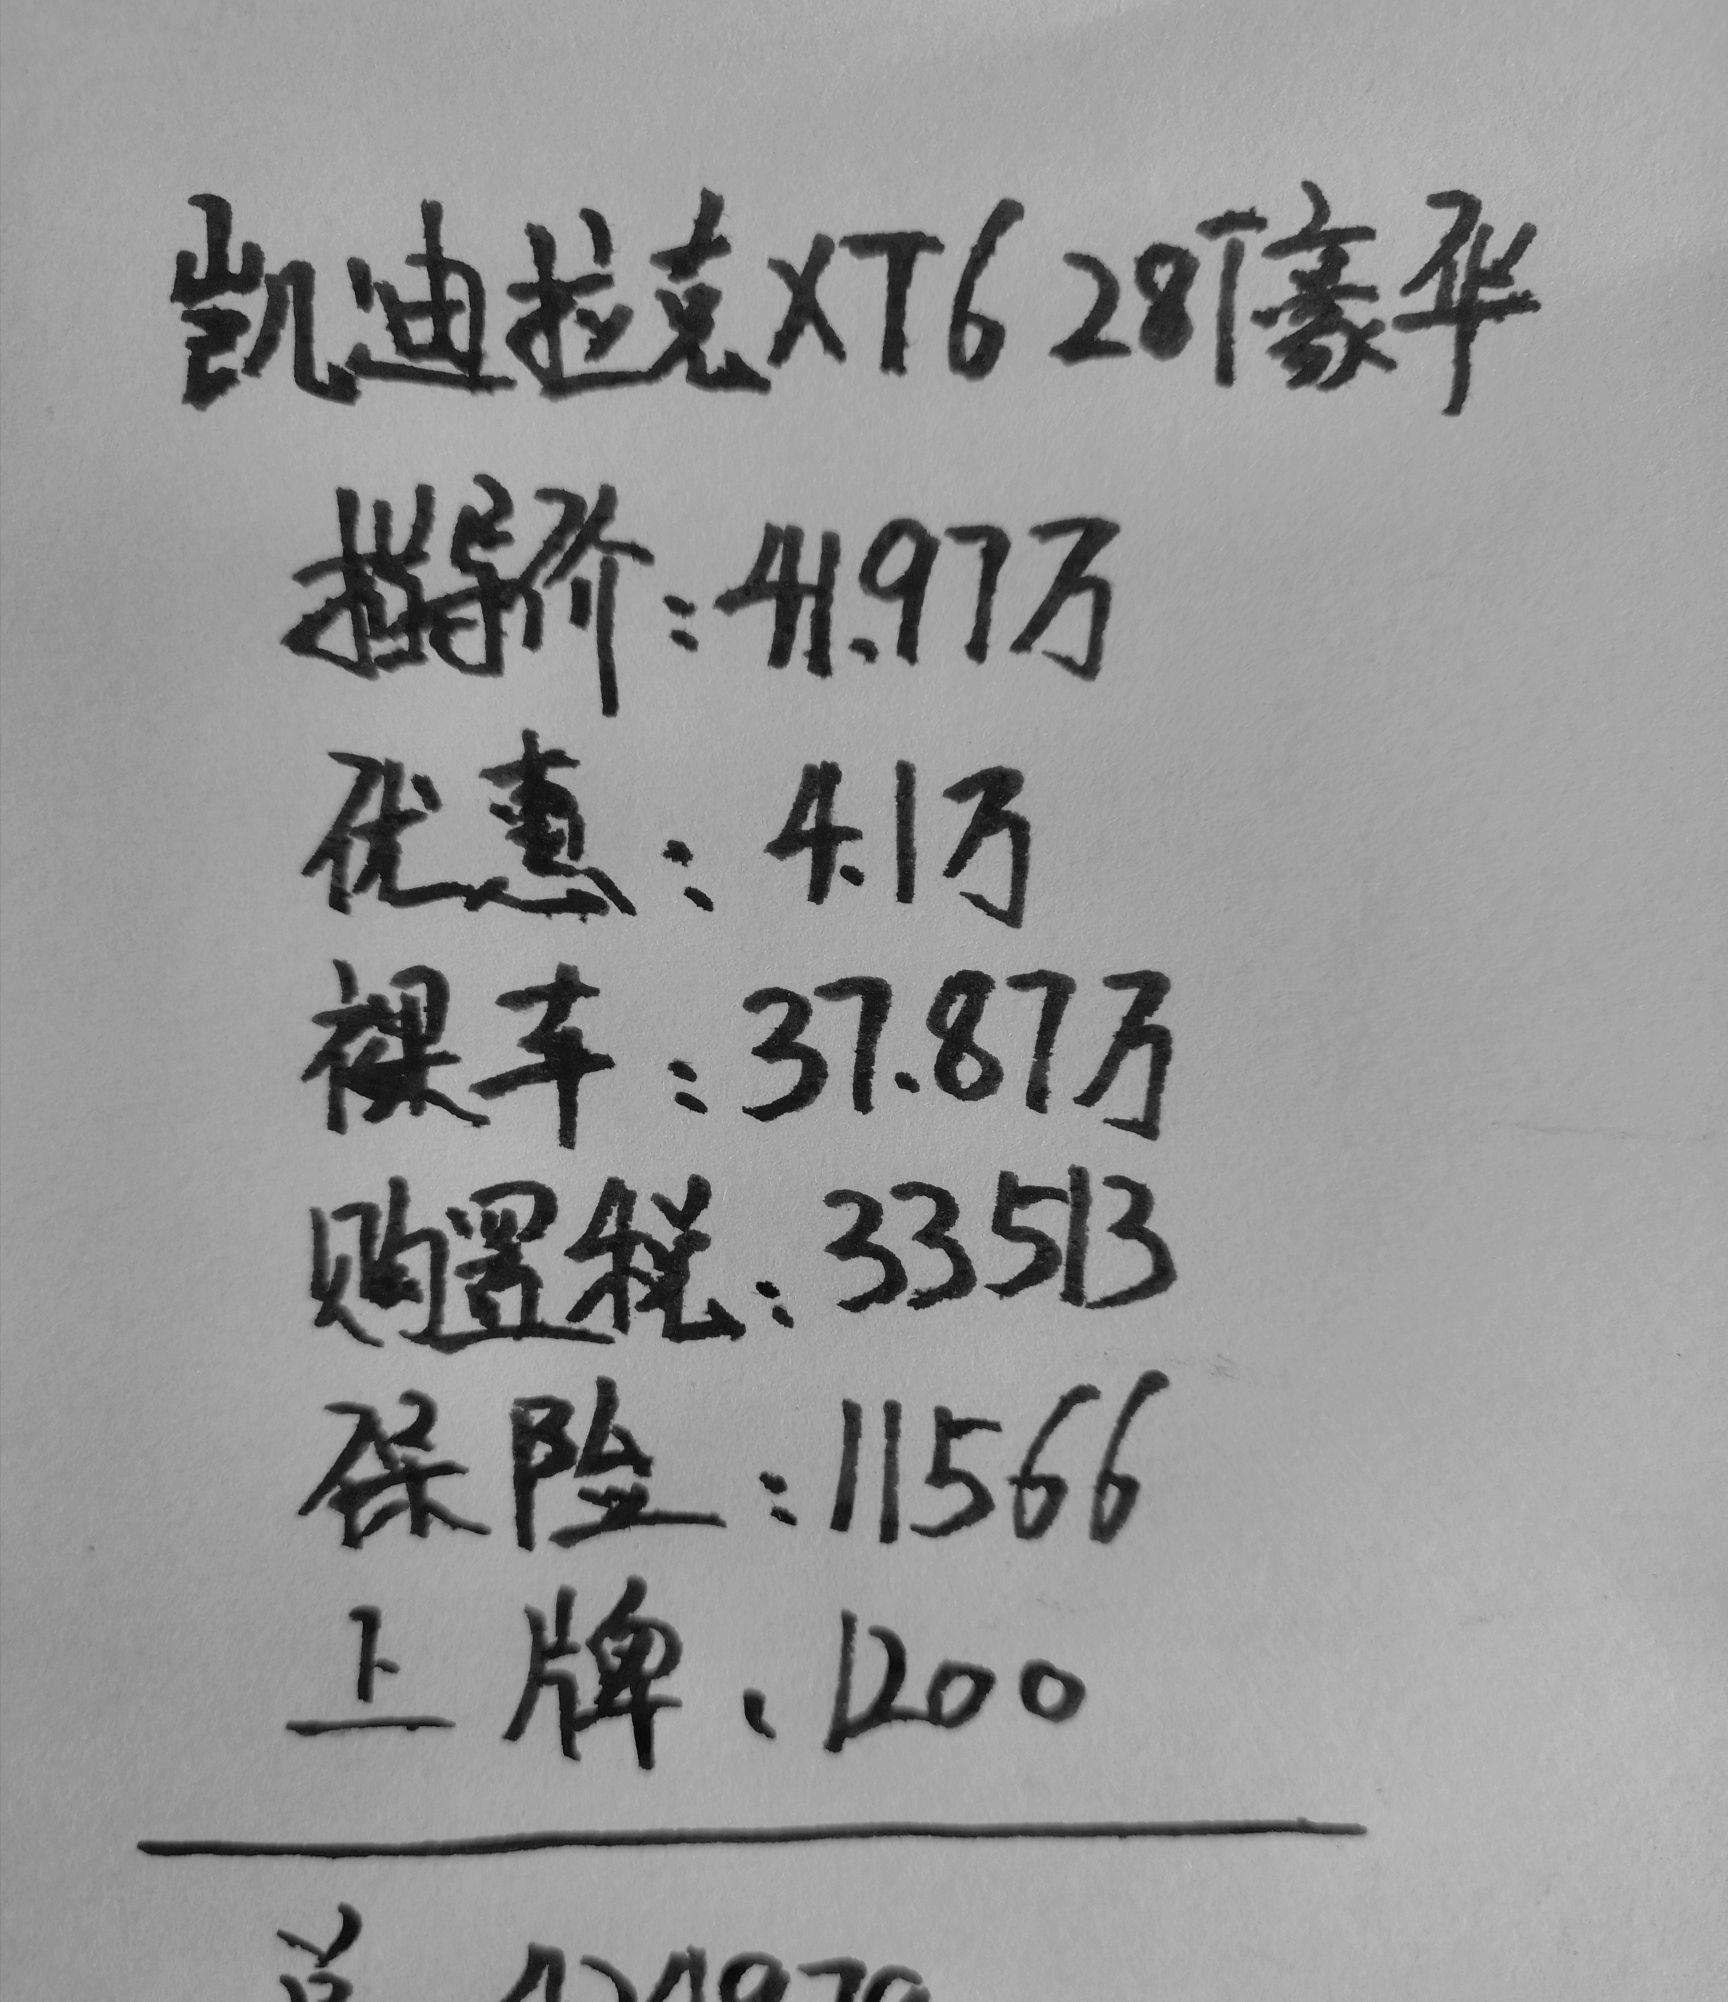 凯迪拉克XT6 28T豪华
指导价:41.97万
优惠:4.1万
裸车:37.87万
购置税:33513
保险:11566
上牌:1200
总